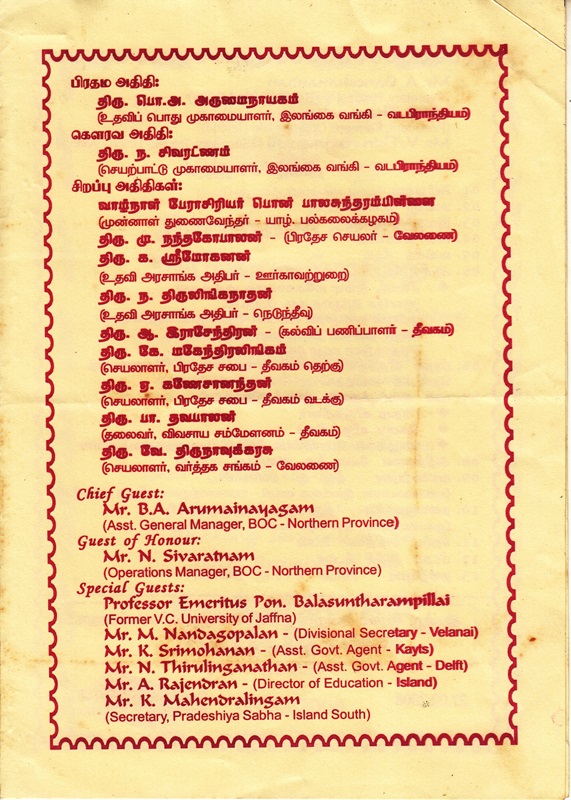 பிரதம அதிதி:
திரு. பொ.அ. அருமைநாயகம்
(உதவிப் பொது முகாமையாளர், இலங்கை வங்கி - வடபிராந்தியம்)
கௌரவ அதிதி:
திரு. ந. சிவரட்ணம்
(செயற்பாட்டு முகாமையாளர், இலங்கை வங்கி - வடபிராந்தியம்)
சிறப்பு அதிதிகள்:
வாழ்நாள் பேராசிரியர் பொன் பாலசுந்தரம்பிள்ளை
(முன்னாள் துணைவேந்தர் - யாழ். பல்கலைக்கழகம்)
திரு. மு. நந்தகோபாலன் - (பிரதேச செயலர் - வேலணை)
திரு. க. ஸ்ரீமோகனன்
(உதவி அரசாங்க அதிபர் - ஊர்காவற்றுறை)
திரு. ந. திருலிங்கநாதன்
(உதவி அரசாங்க அதிபர் - நெடுந்தீவு)
திரு. ஆ. இராசேந்திரன் - (கல்விப் பணிப்பாளர் - தீவகம்)
திரு. கே. மகேந்திரலிங்கம்
(செயலாளர், பிரதேச சபை - தீவகம் தெற்கு)
திரு. ஏ. கணேசானந்தன்
(செயலாளர், பிரதேச சபை - தீவகம் வடக்கு)
திரு. பா. தவபாலன்
(தலைவர், விவசாய சம்மேளனம் - தீவகம்)
திரு. வே. திருநாவுக்கரசு
(செயலாளர், வர்த்தக சங்கம் - வேலணை)
Chief Guest:
Mr. B.A. Arumainayagam
(Asst. General Manager, BOC - Northern Province)
Guest of Honour:
Mr. N. Sivaratnam
(Operations Manager, BOC - Northern Province)
Special Guests:
Professor Emeritus Pon. Balasuntharampillai
(Former V.C. University of Jaffna)
Mr. M. Nandagopalan - (Divisional Secretary - Velanai)
Mr. K. Srimohanan - (Asst. Govt. Agent - Kayts)
Mr. N. Thirulinganathan - (Asst. Govt. Agent - Delft)
Mr. A. Rajendran - (Director of Education - Island)
Mr. K. Mahendralingam
(Secretary, Pradeshiya Sabha - Island South)